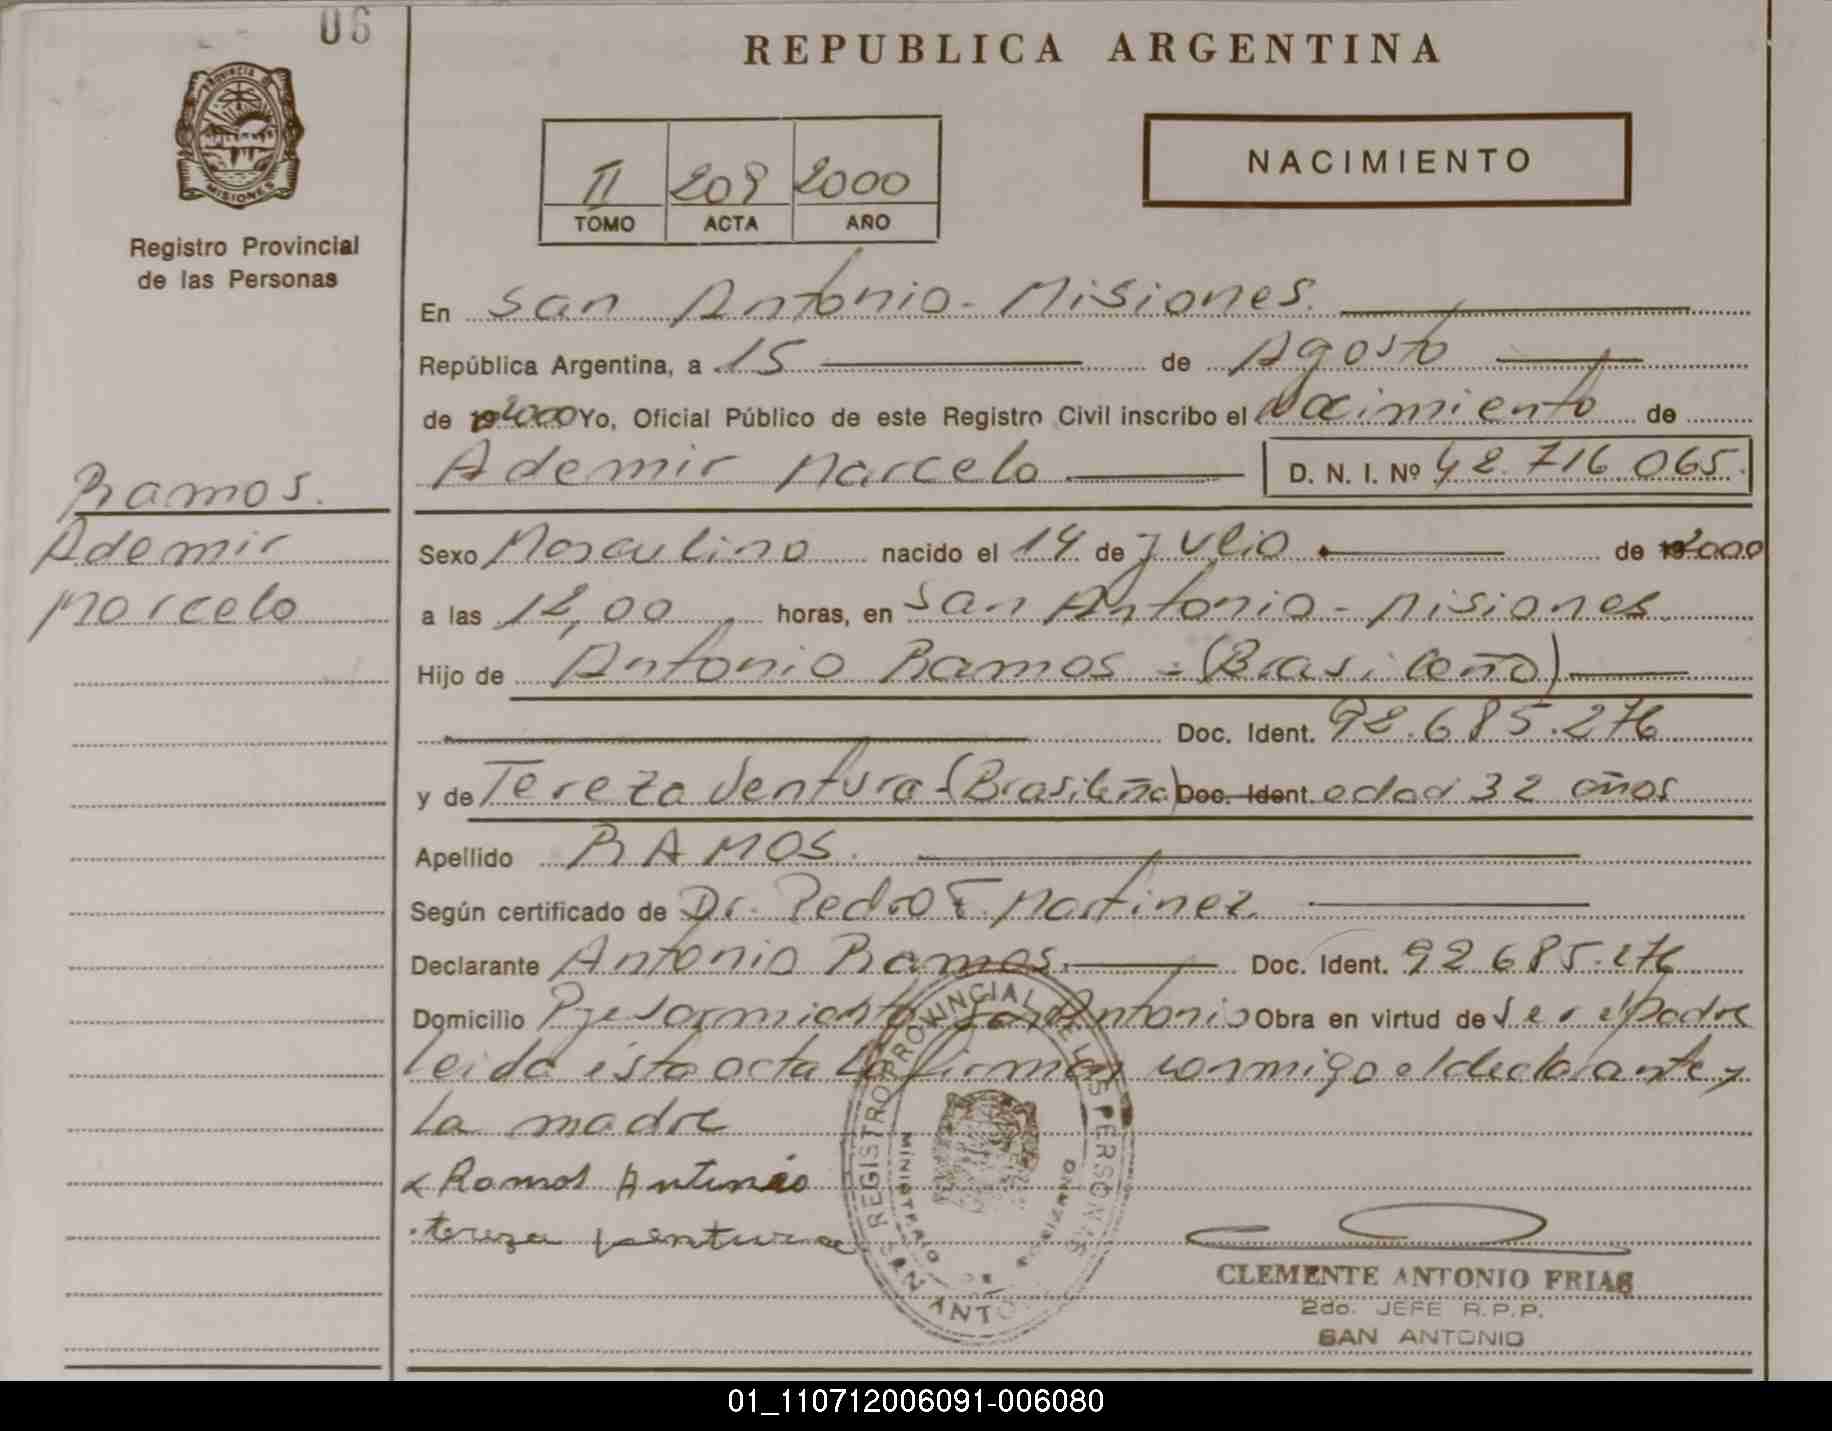 06
REPUBLICA ARGENTINA
PROVINCIA DE
MISIONES
Registro Provincial
de las Personas
II 209 2000
TOMO ACTA AÑO
NACIMIENTO
En San Antonio - Misiones.
República Argentina, a 15 de Agosto
de 2000 Yo, Oficial Público de este Registro Civil inscribo el Nacimiento de
Ademir Marcelo D. N. I. Nº 42.716.065.
Ramos.
Ademir
Marcelo
Sexo Masculino nacido el 14 de julio de 2000
a las 12,00 horas, en San Antonio - Misiones
Hijo de Antonio Ramos - (Brasileño)
Doc. Ident. 92.685.276
y de Tereza Ventura - (Brasileña) Doc. Ident. edad 32 años
Apellido RAMOS.
Según certificado de Dr. Pedro E. Martinez
Declarante Antonio Ramos. Doc. Ident. 92.685.276
Domicilio San Antonio Obra en virtud de ser el padre
leida ésta acta la firman conmigo el declarante y
La madre
x Ramos Antonio
tereza ventura
REGISTRO PROVINCIAL DE LAS PERSONAS
MINISTERIO DE GOBIERNO
SAN ANTONIO
CLEMENTE ANTONIO FRIAS
2do. JEFE R.P.P.
SAN ANTONIO
01_110712006091-006080